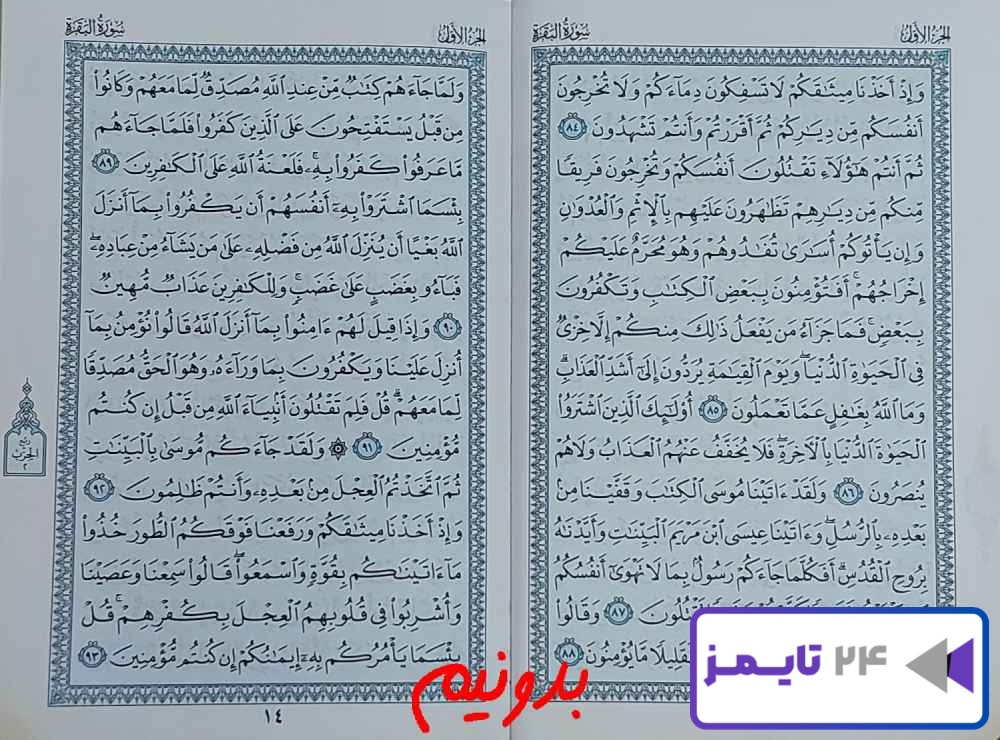 الجزء الأول
سورة البقرة
وَإِذْ أَخَذْنَا مِيثَٰقَكُمْ لَا تَسْفِكُونَ دِمَآءَكُمْ وَلَا تُخْرِجُونَ
أَنفُسَكُم مِّن دِيَٰرِكُمْ ثُمَّ أَقْرَرْتُمْ وَأَنتُمْ تَشْهَدُونَ ٨٤
ثُمَّ أَنتُمْ هَٰٓؤُلَآءِ تَقْتُلُونَ أَنفُسَكُمْ وَتُخْرِجُونَ فَرِيقًا
مِّنكُم مِّن دِيَٰرِهِمْ تَظَٰهَرُونَ عَلَيْهِم بِٱلْإِثْمِ وَٱلْعُدْوَٰنِ
وَإِن يَأْتُوكُمْ أُسَٰرَىٰ تُفَٰدُوهُمْ وَهُوَ مُحَرَّمٌ عَلَيْكُمْ
إِخْرَاجُهُمْ ۚ أَفَتُؤْمِنُونَ بِبَعْضِ ٱلْكِتَٰبِ وَتَكْفُرُونَ
بِبَعْضٍ ۚ فَمَا جَزَآءُ مَن يَفْعَلُ ذَٰلِكَ مِنكُمْ إِلَّا خِزْىٌ
فِى ٱلْحَيَوٰةِ ٱلدُّنْيَا ۖ وَيَوْمَ ٱلْقِيَٰمَةِ يُرَدُّونَ إِلَىٰٓ أَشَدِّ ٱلْعَذَابِ ۗ
وَمَا ٱللَّهُ بِغَٰفِلٍ عَمَّا تَعْمَلُونَ ٨٥ أُو۟لَٰٓئِكَ ٱلَّذِينَ ٱشْتَرَوُا۟
ٱلْحَيَوٰةَ ٱلدُّنْيَا بِٱلْـَٔاخِرَةِ ۖ فَلَا يُخَفَّفُ عَنْهُمُ ٱلْعَذَابُ وَلَا هُمْ
يُنصَرُونَ ٨٦ وَلَقَدْ ءَاتَيْنَا مُوسَى ٱلْكِتَٰبَ وَقَفَّيْنَا مِنۢ
بَعْدِهِۦ بِٱلرُّسُلِ ۖ وَءَاتَيْنَا عِيسَى ٱبْنَ مَرْيَمَ ٱلْبَيِّنَٰتِ وَأَيَّدْنَٰهُ
بِرُوحِ ٱلْقُدُسِ ۗ أَفَكُلَّمَا جَآءَكُمْ رَسُولٌۢ بِمَا لَا تَهْوَىٰٓ أَنفُسُكُمُ
تَقْتُلُونَ ٨٧ وَقَالُوا۟
فَقَلِيلًا مَّا يُؤْمِنُونَ ٨٨
الجزء الأول
سورة البقرة
وَلَمَّا جَآءَهُمْ كِتَٰبٌ مِّنْ عِندِ ٱللَّهِ مُصَدِّقٌ لِّمَا مَعَهُمْ وَكَانُوا۟
مِن قَبْلُ يَسْتَفْتِحُونَ عَلَى ٱلَّذِينَ كَفَرُوا۟ فَلَمَّا جَآءَهُم
مَّا عَرَفُوا۟ كَفَرُوا۟ بِهِۦ ۚ فَلَعْنَةُ ٱللَّهِ عَلَى ٱلْكَٰفِرِينَ ٨٩
بِئْسَمَا ٱشْتَرَوْا۟ بِهِۦٓ أَنفُسَهُمْ أَن يَكْفُرُوا۟ بِمَآ أَنزَلَ
ٱللَّهُ بَغْيًا أَن يُنَزِّلَ ٱللَّهُ مِن فَضْلِهِۦ عَلَىٰ مَن يَشَآءُ مِنْ عِبَادِهِۦ ۖ
فَبَآءُو بِغَضَبٍ عَلَىٰ غَضَبٍ ۚ وَلِلْكَٰفِرِينَ عَذَابٌ مُّهِينٌ
٩٠ وَإِذَا قِيلَ لَهُمْ ءَامِنُوا۟ بِمَآ أَنزَلَ ٱللَّهُ قَالُوا۟ نُؤْمِنُ بِمَآ
أُنزِلَ عَلَيْنَا وَيَكْفُرُونَ بِمَا وَرَآءَهُۥ وَهُوَ ٱلْحَقُّ مُصَدِّقًا
لِّمَا مَعَهُمْ ۗ قُلْ فَلِمَ تَقْتُلُونَ أَنۢبِيَآءَ ٱللَّهِ مِن قَبْلُ إِن كُنتُم
مُّؤْمِنِينَ ٩١ ۞ وَلَقَدْ جَآءَكُم مُّوسَىٰ بِٱلْبَيِّنَٰتِ
ثُمَّ ٱتَّخَذْتُمُ ٱلْعِجْلَ مِنۢ بَعْدِهِۦ وَأَنتُمْ ظَٰلِمُونَ ٩٢
وَإِذْ أَخَذْنَا مِيثَٰقَكُمْ وَرَفَعْنَا فَوْقَكُمُ ٱلطُّورَ خُذُوا۟
مَآ ءَاتَيْنَٰكُم بِقُوَّةٍ وَٱسْمَعُوا۟ ۖ قَالُوا۟ سَمِعْنَا وَعَصَيْنَا
وَأُشْرِبُوا۟ فِى قُلُوبِهِمُ ٱلْعِجْلَ بِكُفْرِهِمْ ۚ قُلْ
بِئْسَمَا يَأْمُرُكُم بِهِۦٓ إِيمَٰنُكُمْ إِن كُنتُم مُّؤْمِنِينَ ٩٣
ربع
الحزب
٢
١٤
بدونیم
۲۴ تایمز